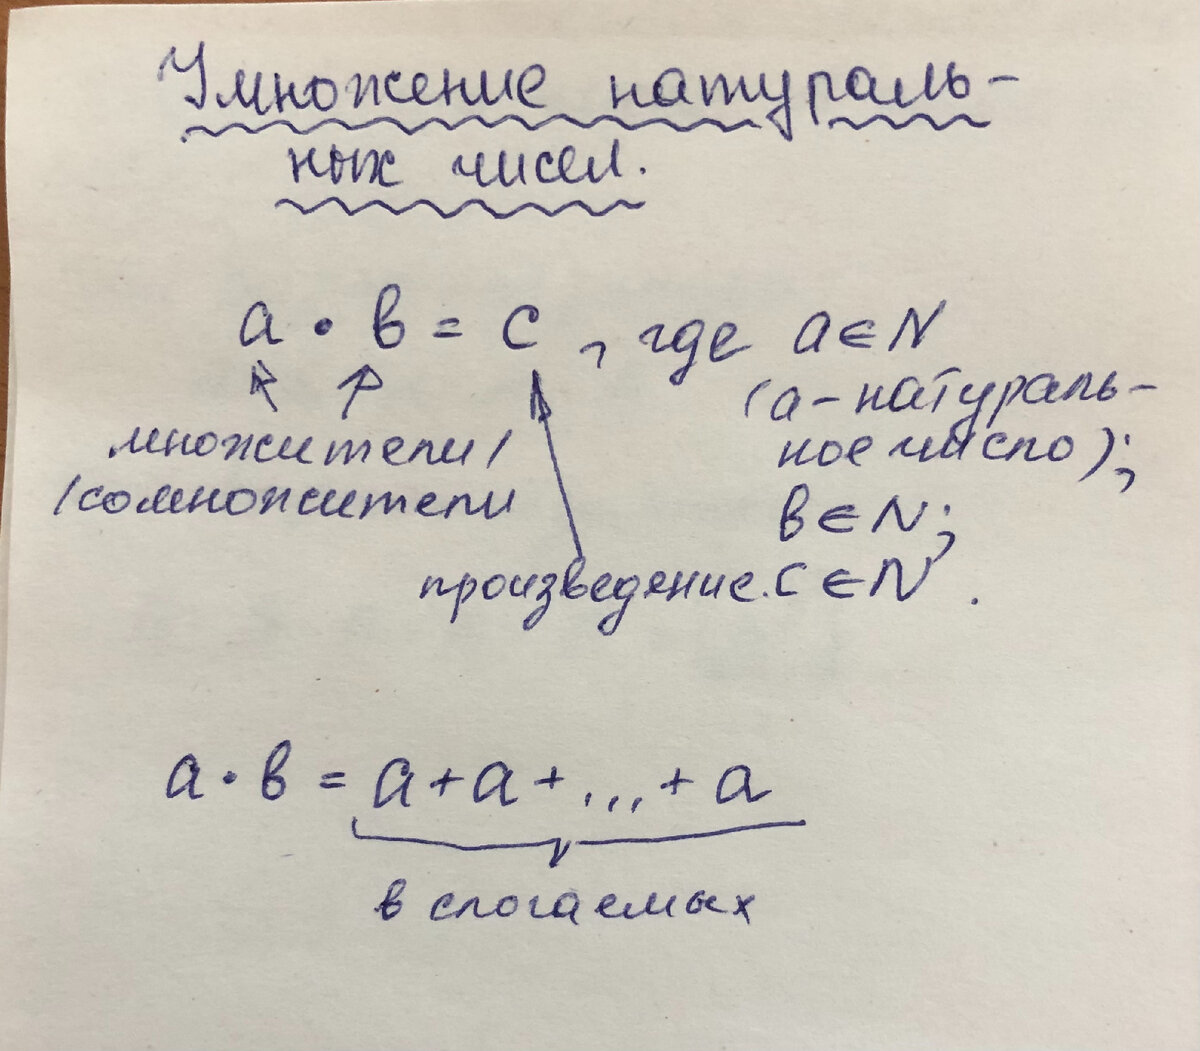 Умножение натураль-
ных чисел.
а • в = с , где а ∈ N
(а - натураль-
ное число);
множители /
/сомножители
в ∈ N;
произведение. с ∈ N .
а • в = а + а + ... + а
в слогаемых